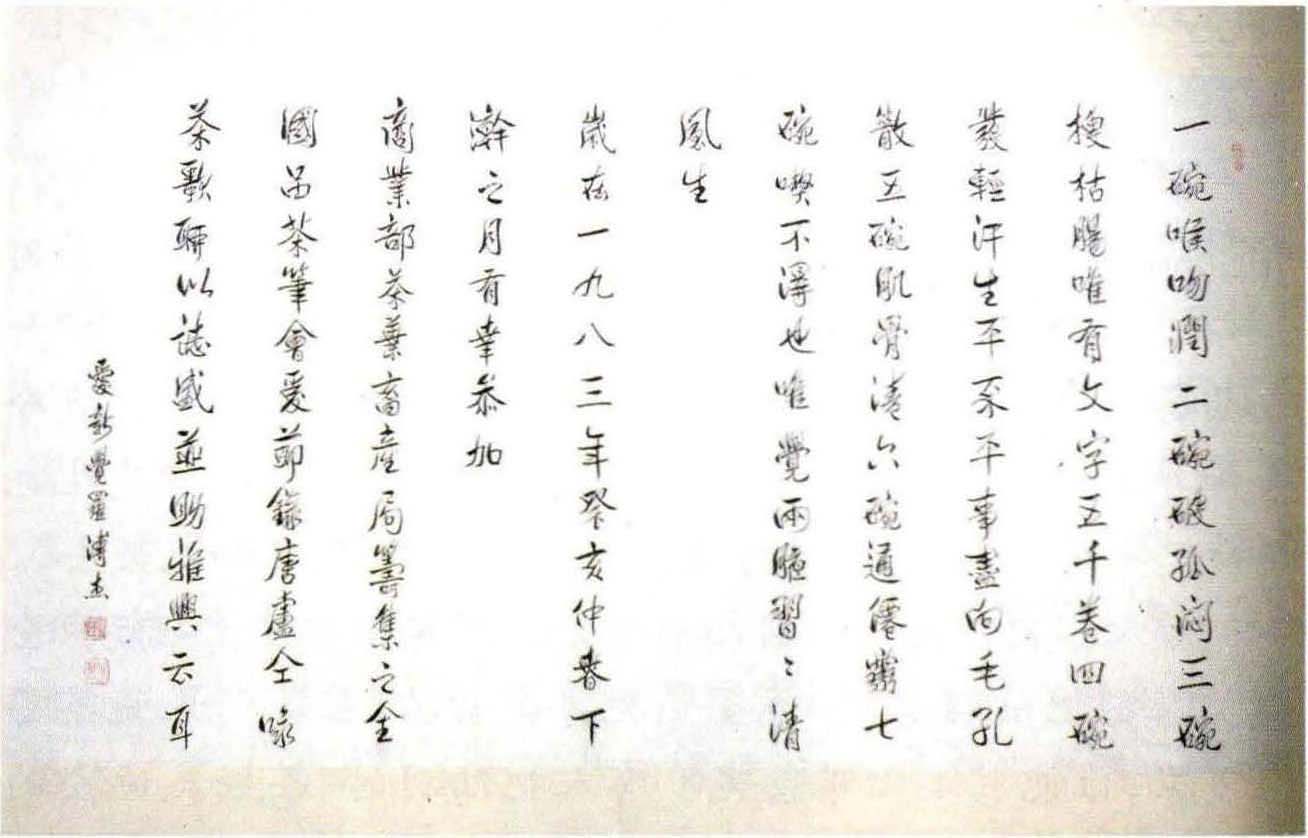 一碗喉吻潤二碗破孤悶三碗
搜枯腸唯有文字五千卷四碗
發輕汗生平不平事盡向毛孔
散五碗肌骨清六碗通僊靈七
碗喫不得也唯覺兩腋習〻清
風生
歲在一九八三年癸亥仲春下
澣之月有幸參加
商業部茶葉畜產局籌集之全
國品茶筆會爰節錄唐盧仝咏
茶歌聊以誌盛並助雅興云耳
愛新覺羅溥杰